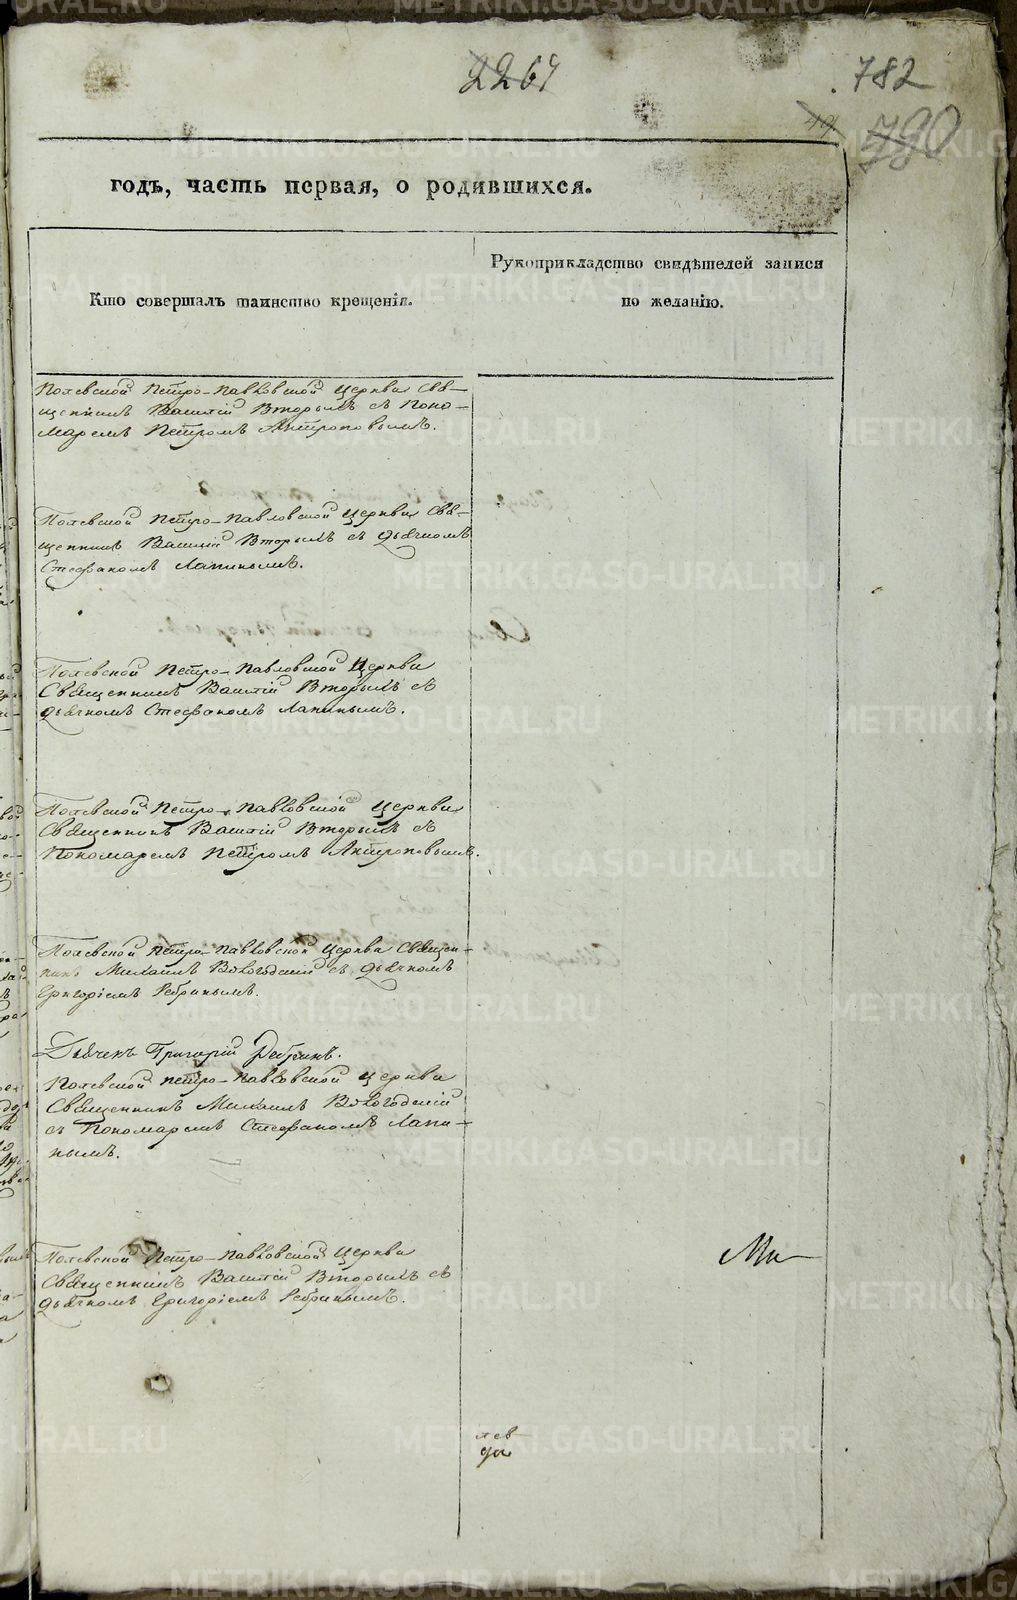 2267
782
790
годъ, часть первая, о родившихся.
Кто совершалъ таинство крещенія.
Рукоприкладство свидѣтелей записи
по желанію.
Полевской Петро-Павловской Церкви Свя-
щенникъ Василій Вторыхъ съ Поно-
маремъ Петромъ Антроповымъ.
Полевской Петро-Павловской Церкви Свя-
щенникъ Василій Вторыхъ съ дьячкомъ
Стефаномъ Лапинымъ.
Полевской Петро-Павловской Церкви
Священникъ Василій Вторыхъ съ
дьячкомъ Стефаномъ Лапинымъ.
Полевской Петро-Павловской Церкви
Священникъ Василій Вторыхъ съ
Пономаремъ Петромъ Антроповымъ.
Полевской Петро-Павловской Церкви Священ-
никъ Михаилъ Вологодский съ дьячкомъ
Григоріемъ Ребринымъ.
Дьячекъ Григорій Ребринъ.
Полевской Петро-Павловской Церкви
Священникъ Михаилъ Вологодскій
съ Пономаремъ Стефаномъ Лапи-
нымъ.
Полевской Петро-Павловской Церкви
Священникъ Василій Вторыхъ съ
дьячкомъ Григоріемъ Ребринымъ.
Ми-
METRIKI.GASO-URAL.RU